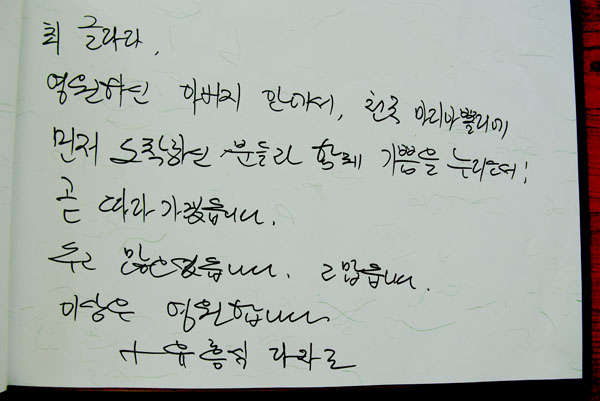 최 글라라,
영원하신 아버지 안에서, 천국 마리아뽈리에
먼저 도착하신 분들과 함께 기쁨을 누리소서!
곧 따라가겠습니다.
수고 많으셨습니다. 고맙습니다.
이상은 영원합니다
+ 유흥식 라자로